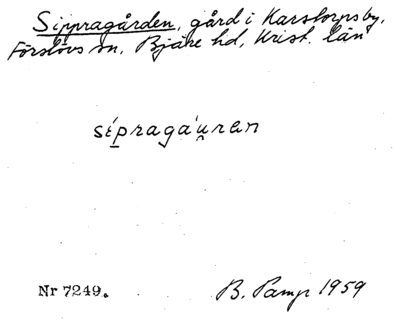 Sippragården, gård i Karstorpsby,
Förslövs sn, Bjäre hd, Krist. län
sépragáu̯ren
Nr 7249.
B. Pamp 1959